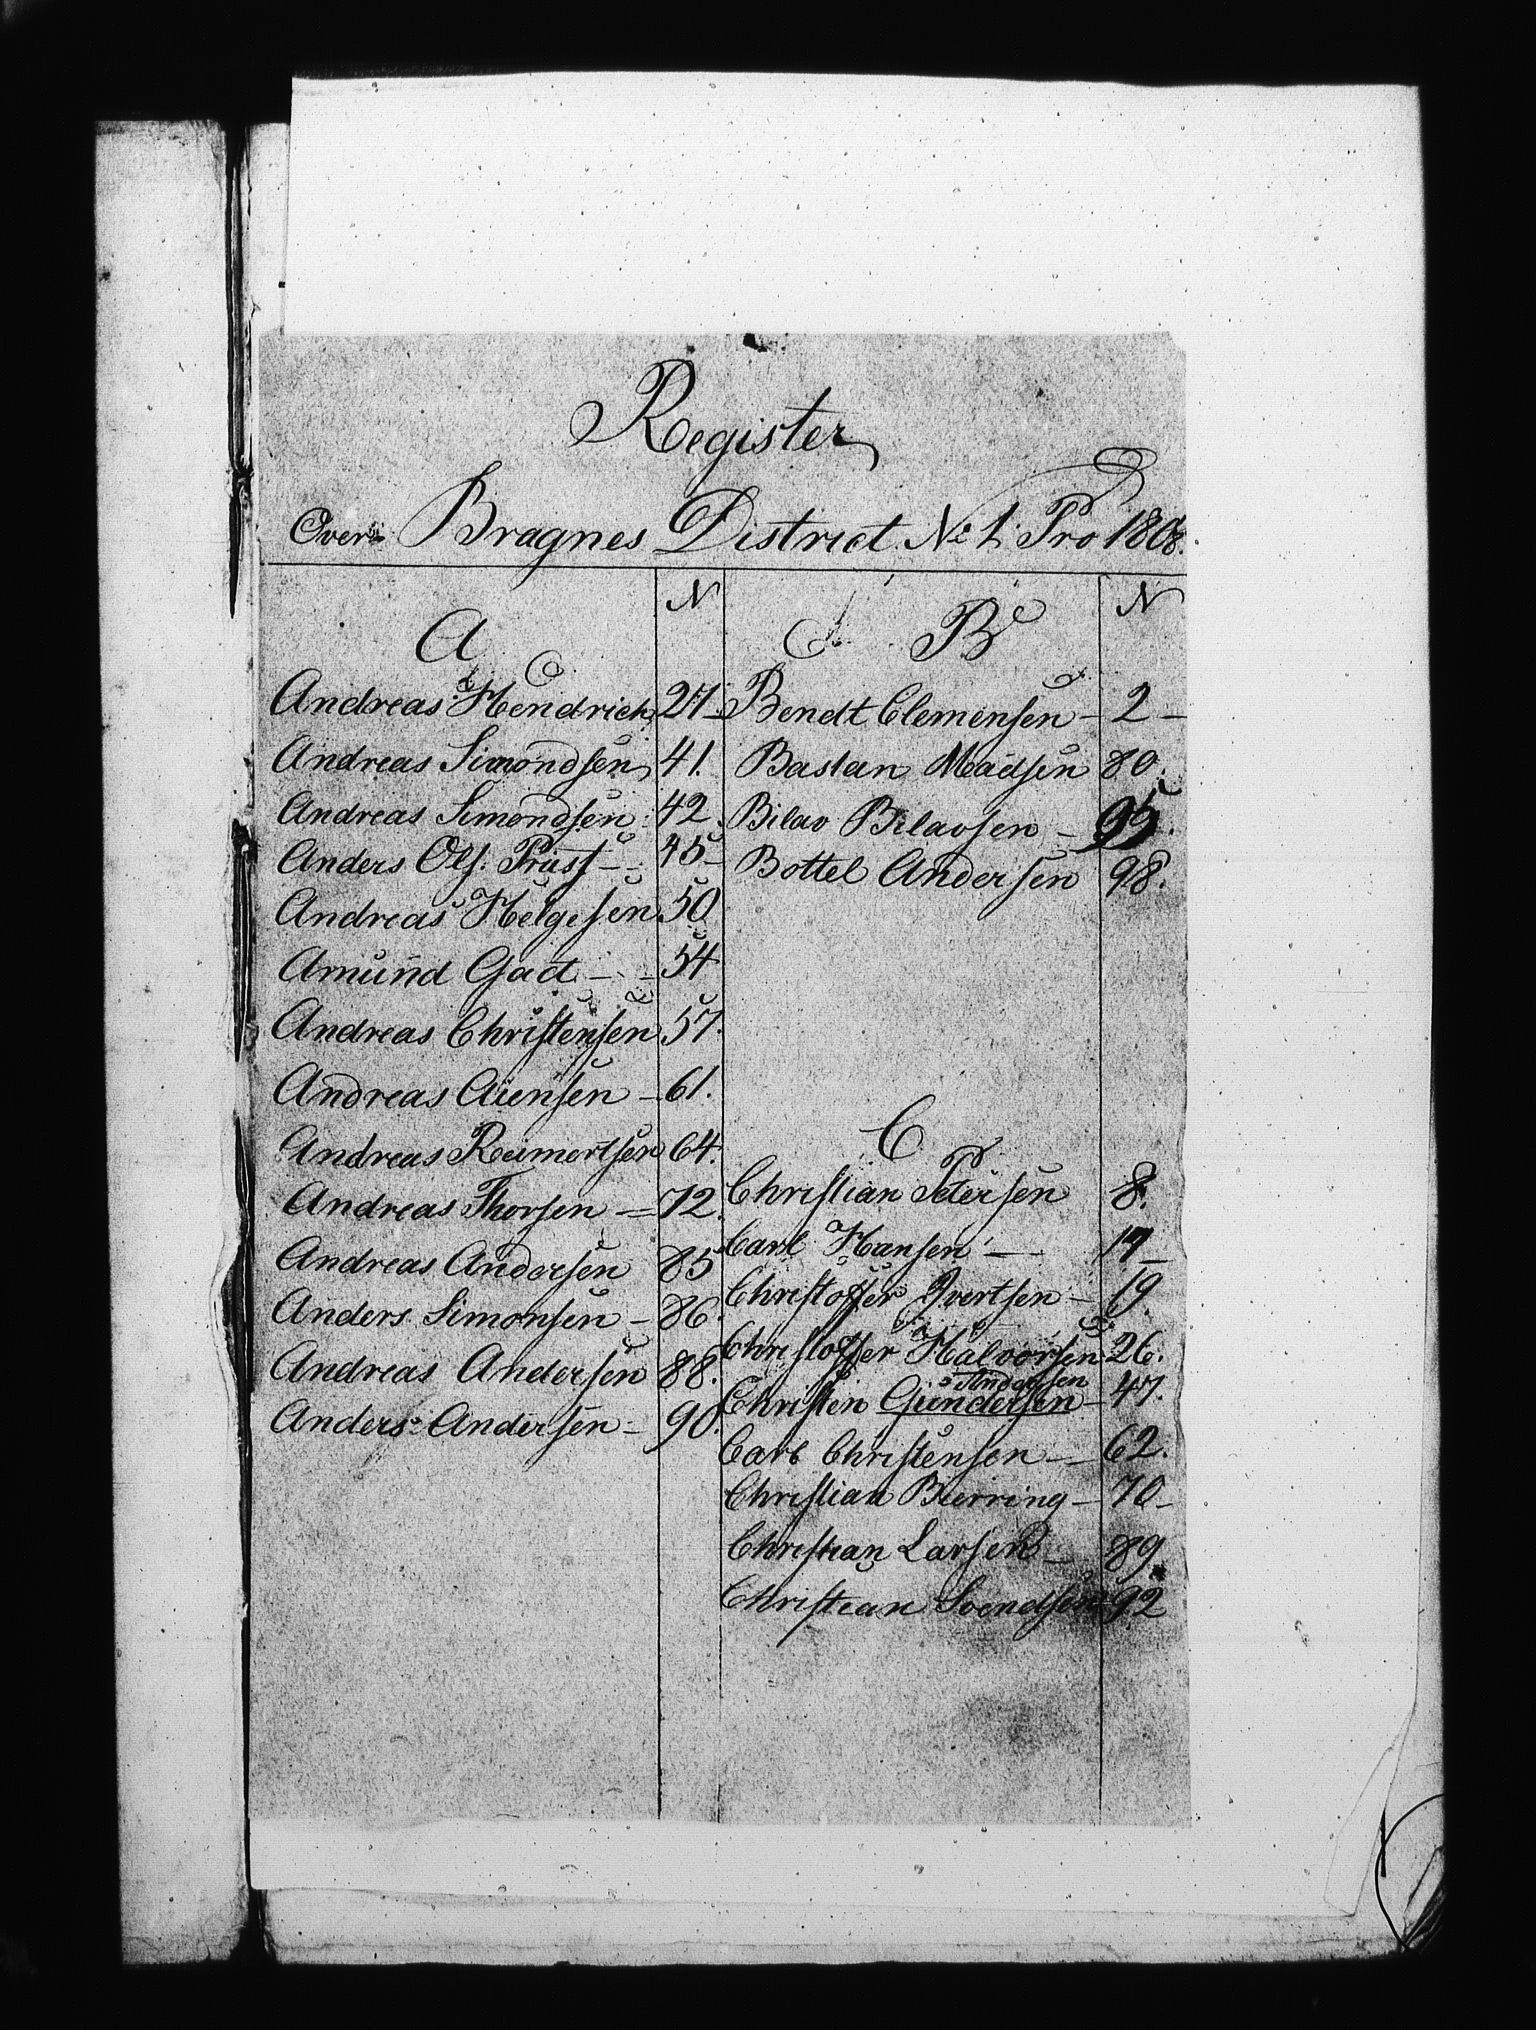 Register
Over Bragnes District No 1. Pro 1808.
A
N
Andreas Hendrich 27
Andreas Simondsen 41.
Andreas Simondsen 42
Anders Ols. Prust 45
Andreas Helgesen 50
Amund Gad 54
Andreas Christensen 57.
Andreas Aiensen 61.
Andreas Reimertsen 64.
Andreas Thorsen 72.
Andreas Andersen 85
Anders Simonsen 86.
Andreas Andersen 88.
Anders Andersen 90.
B
N
Bendt Clemensen 2
Bastan Madsen 80.
Bilav Bilavsen 95.
Bottel Andersen 98.
C
Christian Petersen 8.
Carl Hansen 17
Christoffer Ivertsen 19.
Christoffer Halvorsen 26.
Andersen
Christen Gundersen 47.
Carl Christensen 62.
Christian Bierring 70
Christian Larsen 89
Christian Svendsen 92